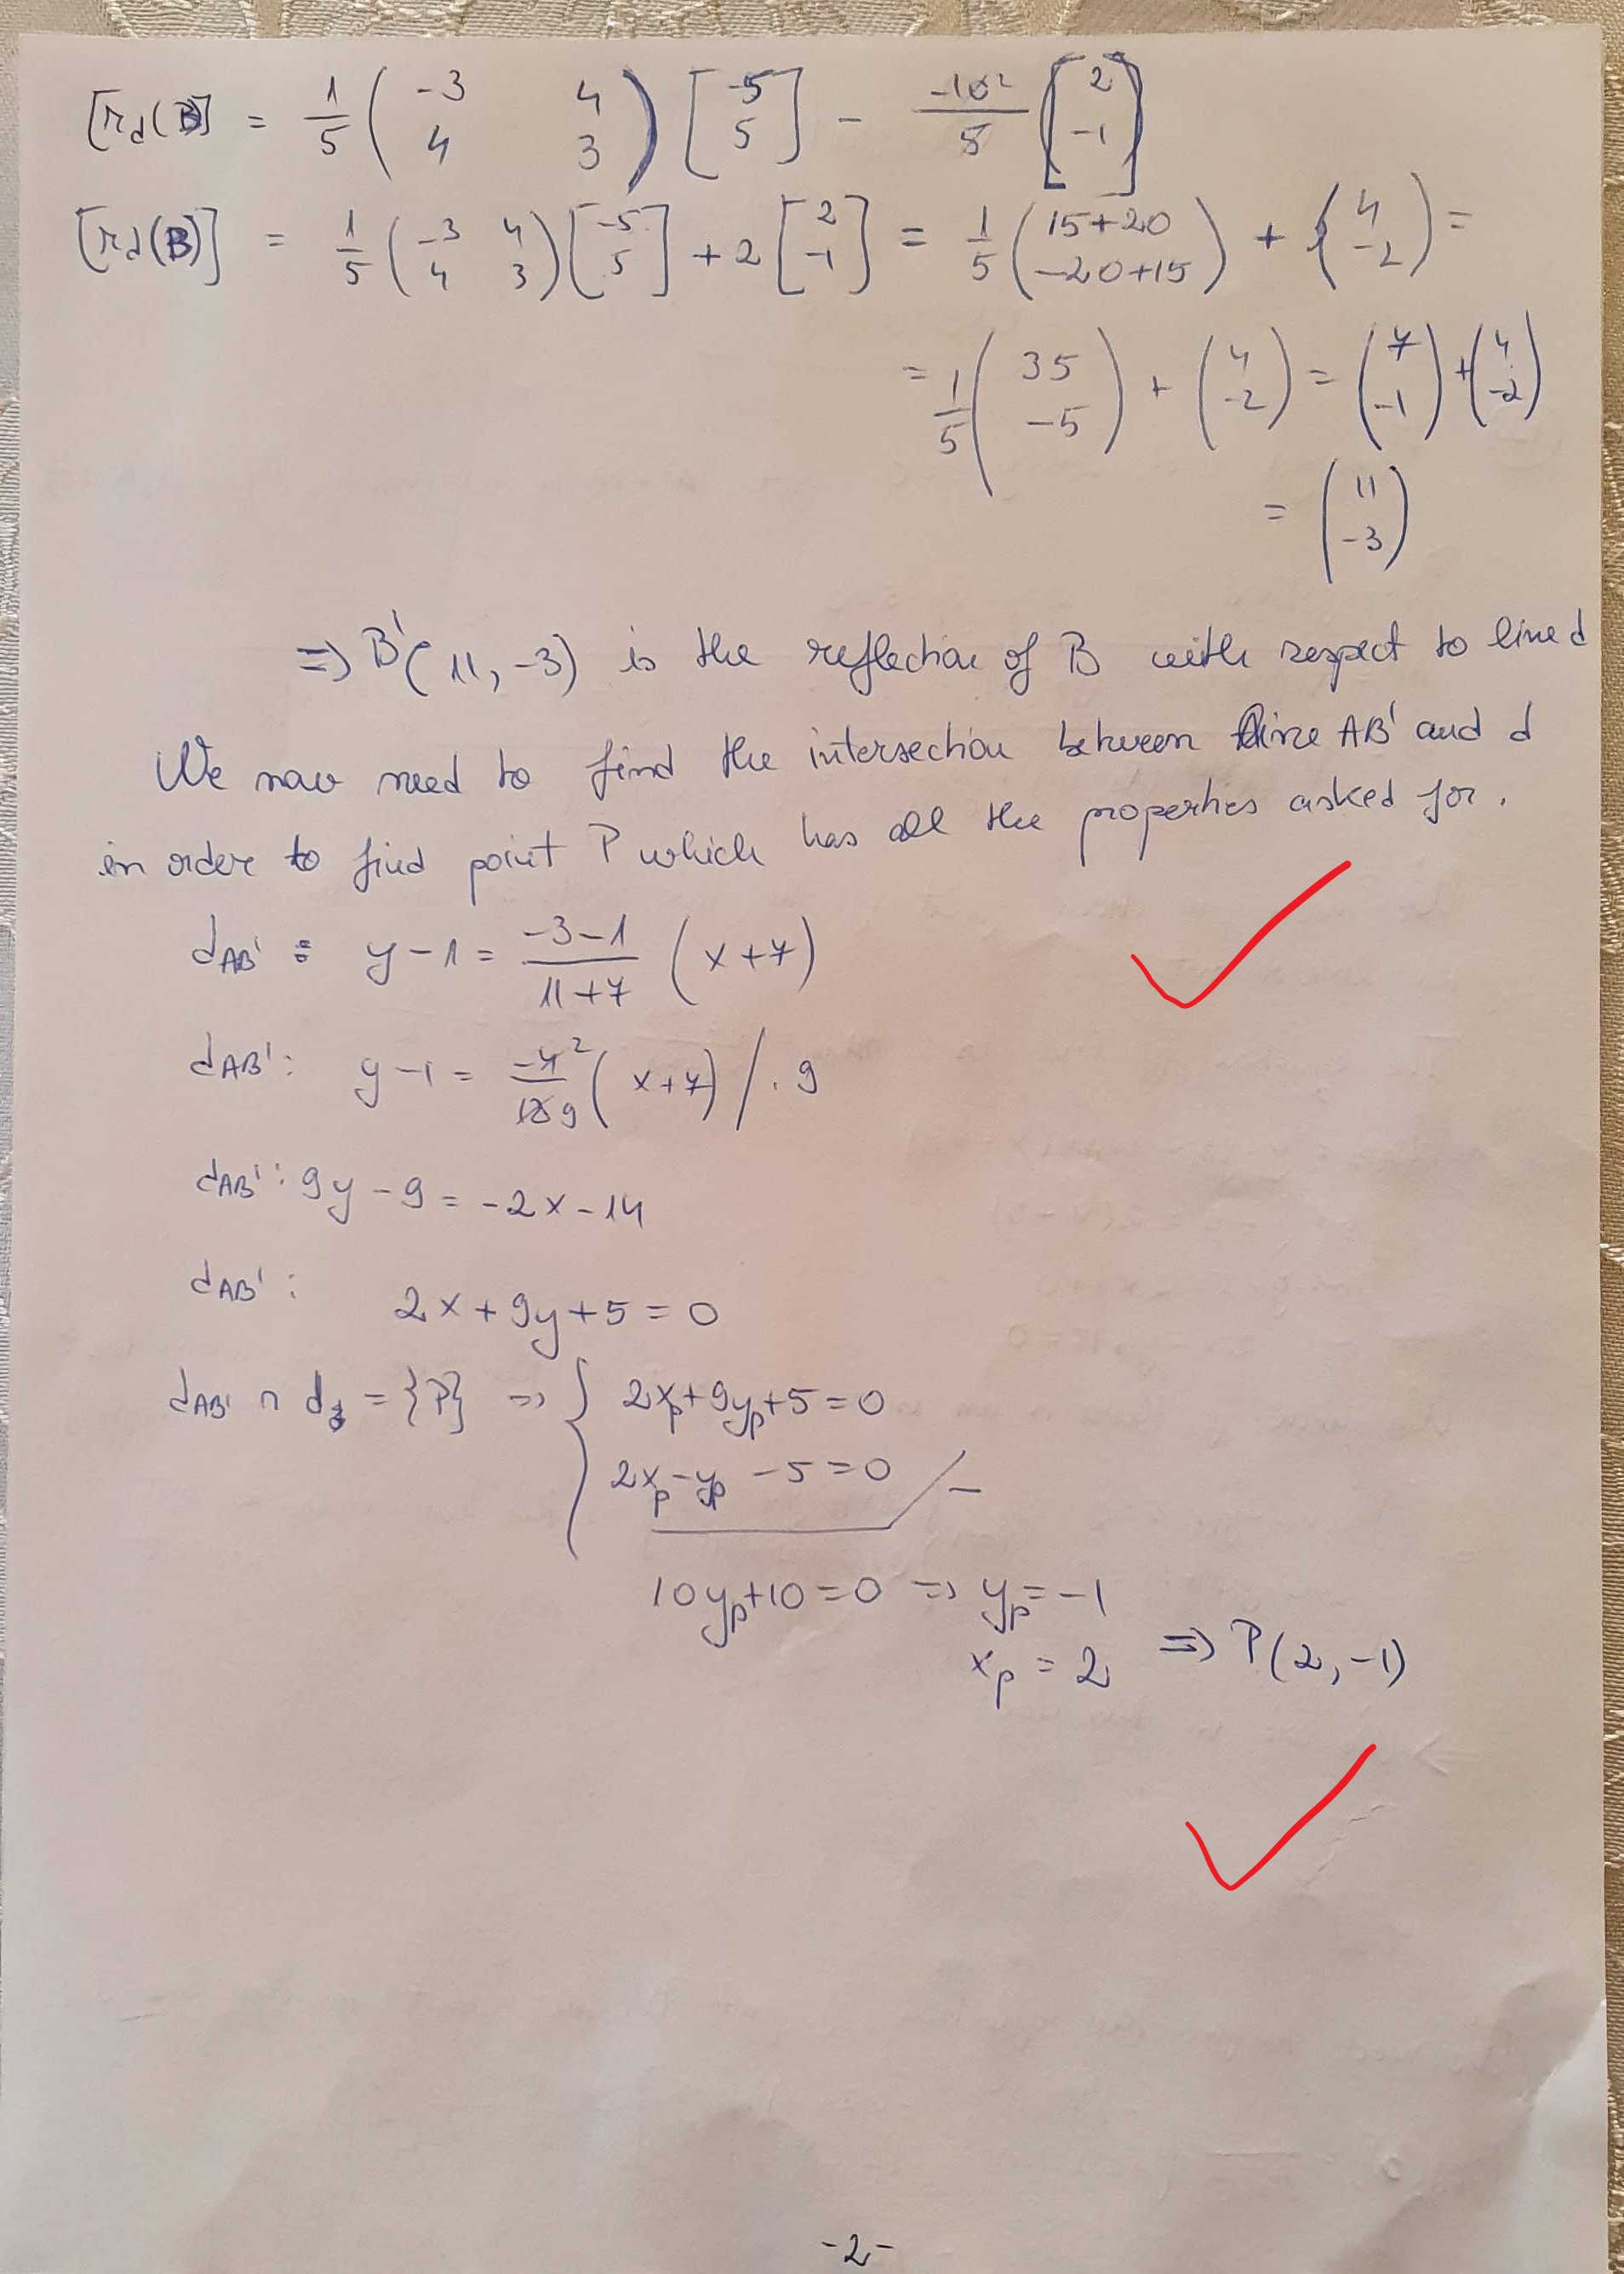 [r_d(B)] = 1/5 (-3 4 / 4 3) [-5 / 5] - -10²/5 [2 / -1]
[r_d(B)] = 1/5 (-3 4 / 4 3) [-5 / 5] + 2 [2 / -1] = 1/5 (15+20 / -20+15) + (4 / -2) =
= 1/5 (35 / -5) + (4 / -2) = (7 / -1) + (4 / -2)
= (11 / -3)
⇒ B'(11, -3) is the reflection of B with respect to line d
We now need to find the intersection between line AB' and d
in order to find point P which has all the properties asked for.
d_AB' : y - 1 = (-3-1)/(11+7) (x+7)
d_AB' : y - 1 = -4²/18 9 (x+7) / · 9
d_AB' : 9y - 9 = -2x - 14
d_AB' : 2x + 9y + 5 = 0
d_AB' ∩ d = {P} ⇒ { 2x_p + 9y_p + 5 = 0
2x_p - y_p - 5 = 0 / -
10y_p + 10 = 0 ⇒ y_p = -1
x_p = 2 ⇒ P(2, -1)
-2-